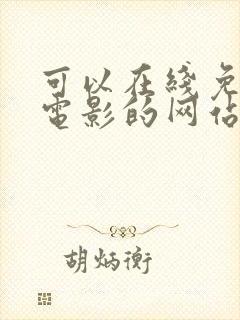 可以在线免
电影的网站
胡炳衡